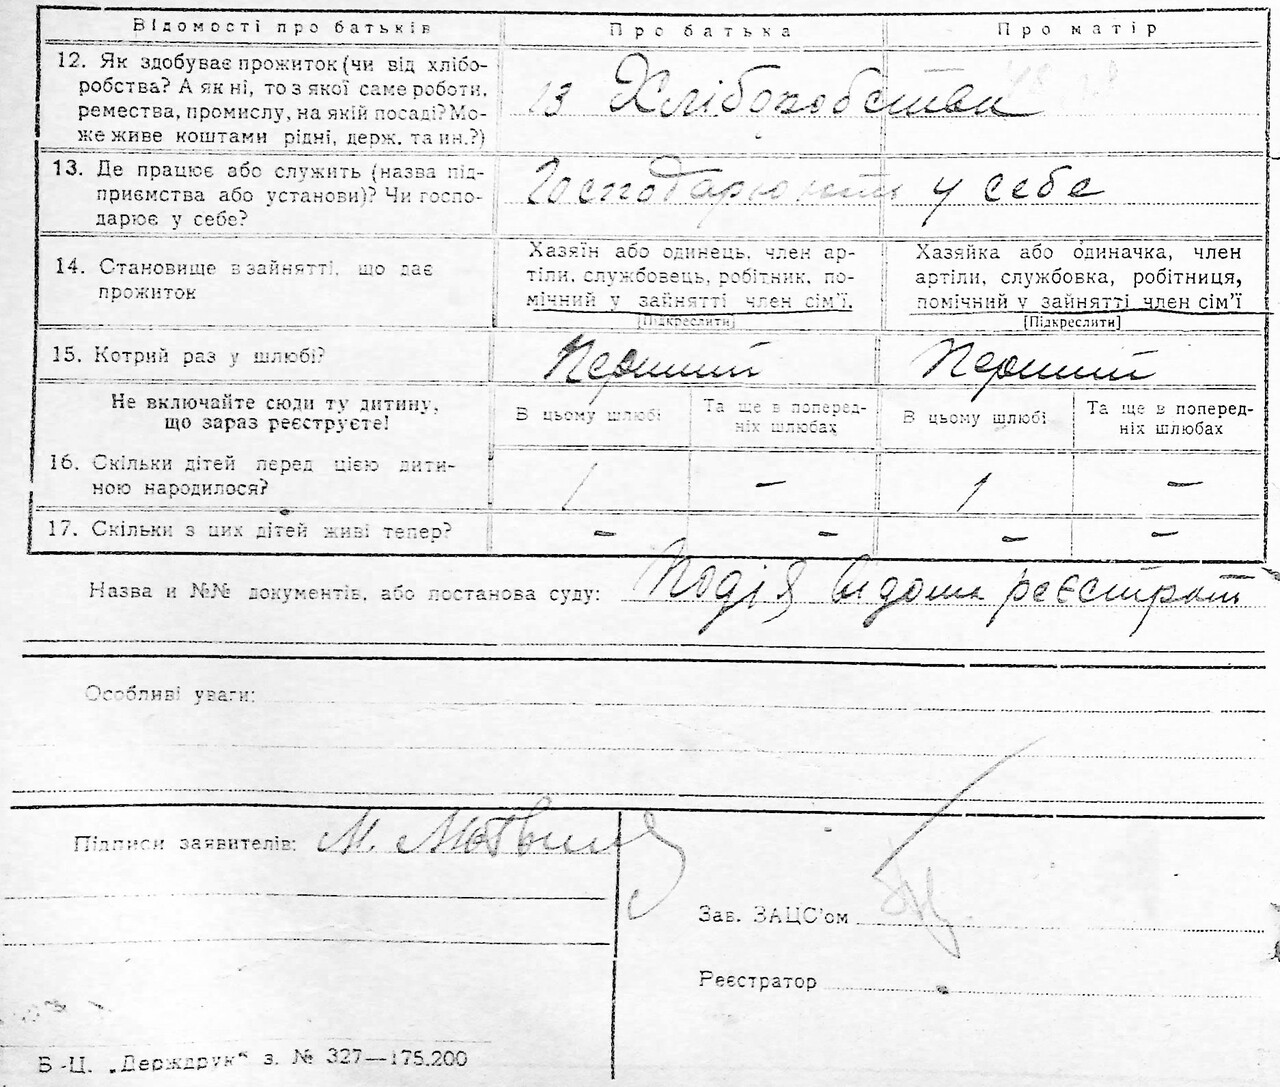 Відомості про батьків Про батька Про матір
12. Як здобуває прожиток (чи від хлібо-
робства? А як ні, то з якої саме роботи,
ремества, промислу, на якій посаді? Мо-
же живе коштами рідні, держ. та ин.?)
із Хліборобства
13. Де працює або служить (назва під-
приємства або установи)? Чи госпо-
дарює у себе?
Господарюють у себе
14. Становище в зайнятті, що дає
прожиток
Хазяїн або одинець, член ар-
тіли, службовець, робітник, по-
мічний у зайнятті член сім'ї.
[Підкреслити]
Хазяйка або одиначка, член
артіли, службовка, робітниця,
помічний у зайнятті член сім'ї
[Підкреслити]
15. Котрий раз у шлюбі? Перший Перший
Не включайте сюди ту дитину,
що зараз реєструєте!
В цьому шлюбі
Та ще в поперед-
ніх шлюбах
В цьому шлюбі
Та ще в поперед-
ніх шлюбах
16. Скільки дітей перед цією дити-
ною народилося?
1 – 1 –
17. Скільки з цих дітей живі тепер? – – – –
Назва и №№ документів, або постанова суду: Подія відома реєстрат
Особливі уваги:
Підписи заявителів: М.
Зав. ЗАЦС'ом
Реєстратор
Б-Ц. „Держдрук“ з. № 327—175.200